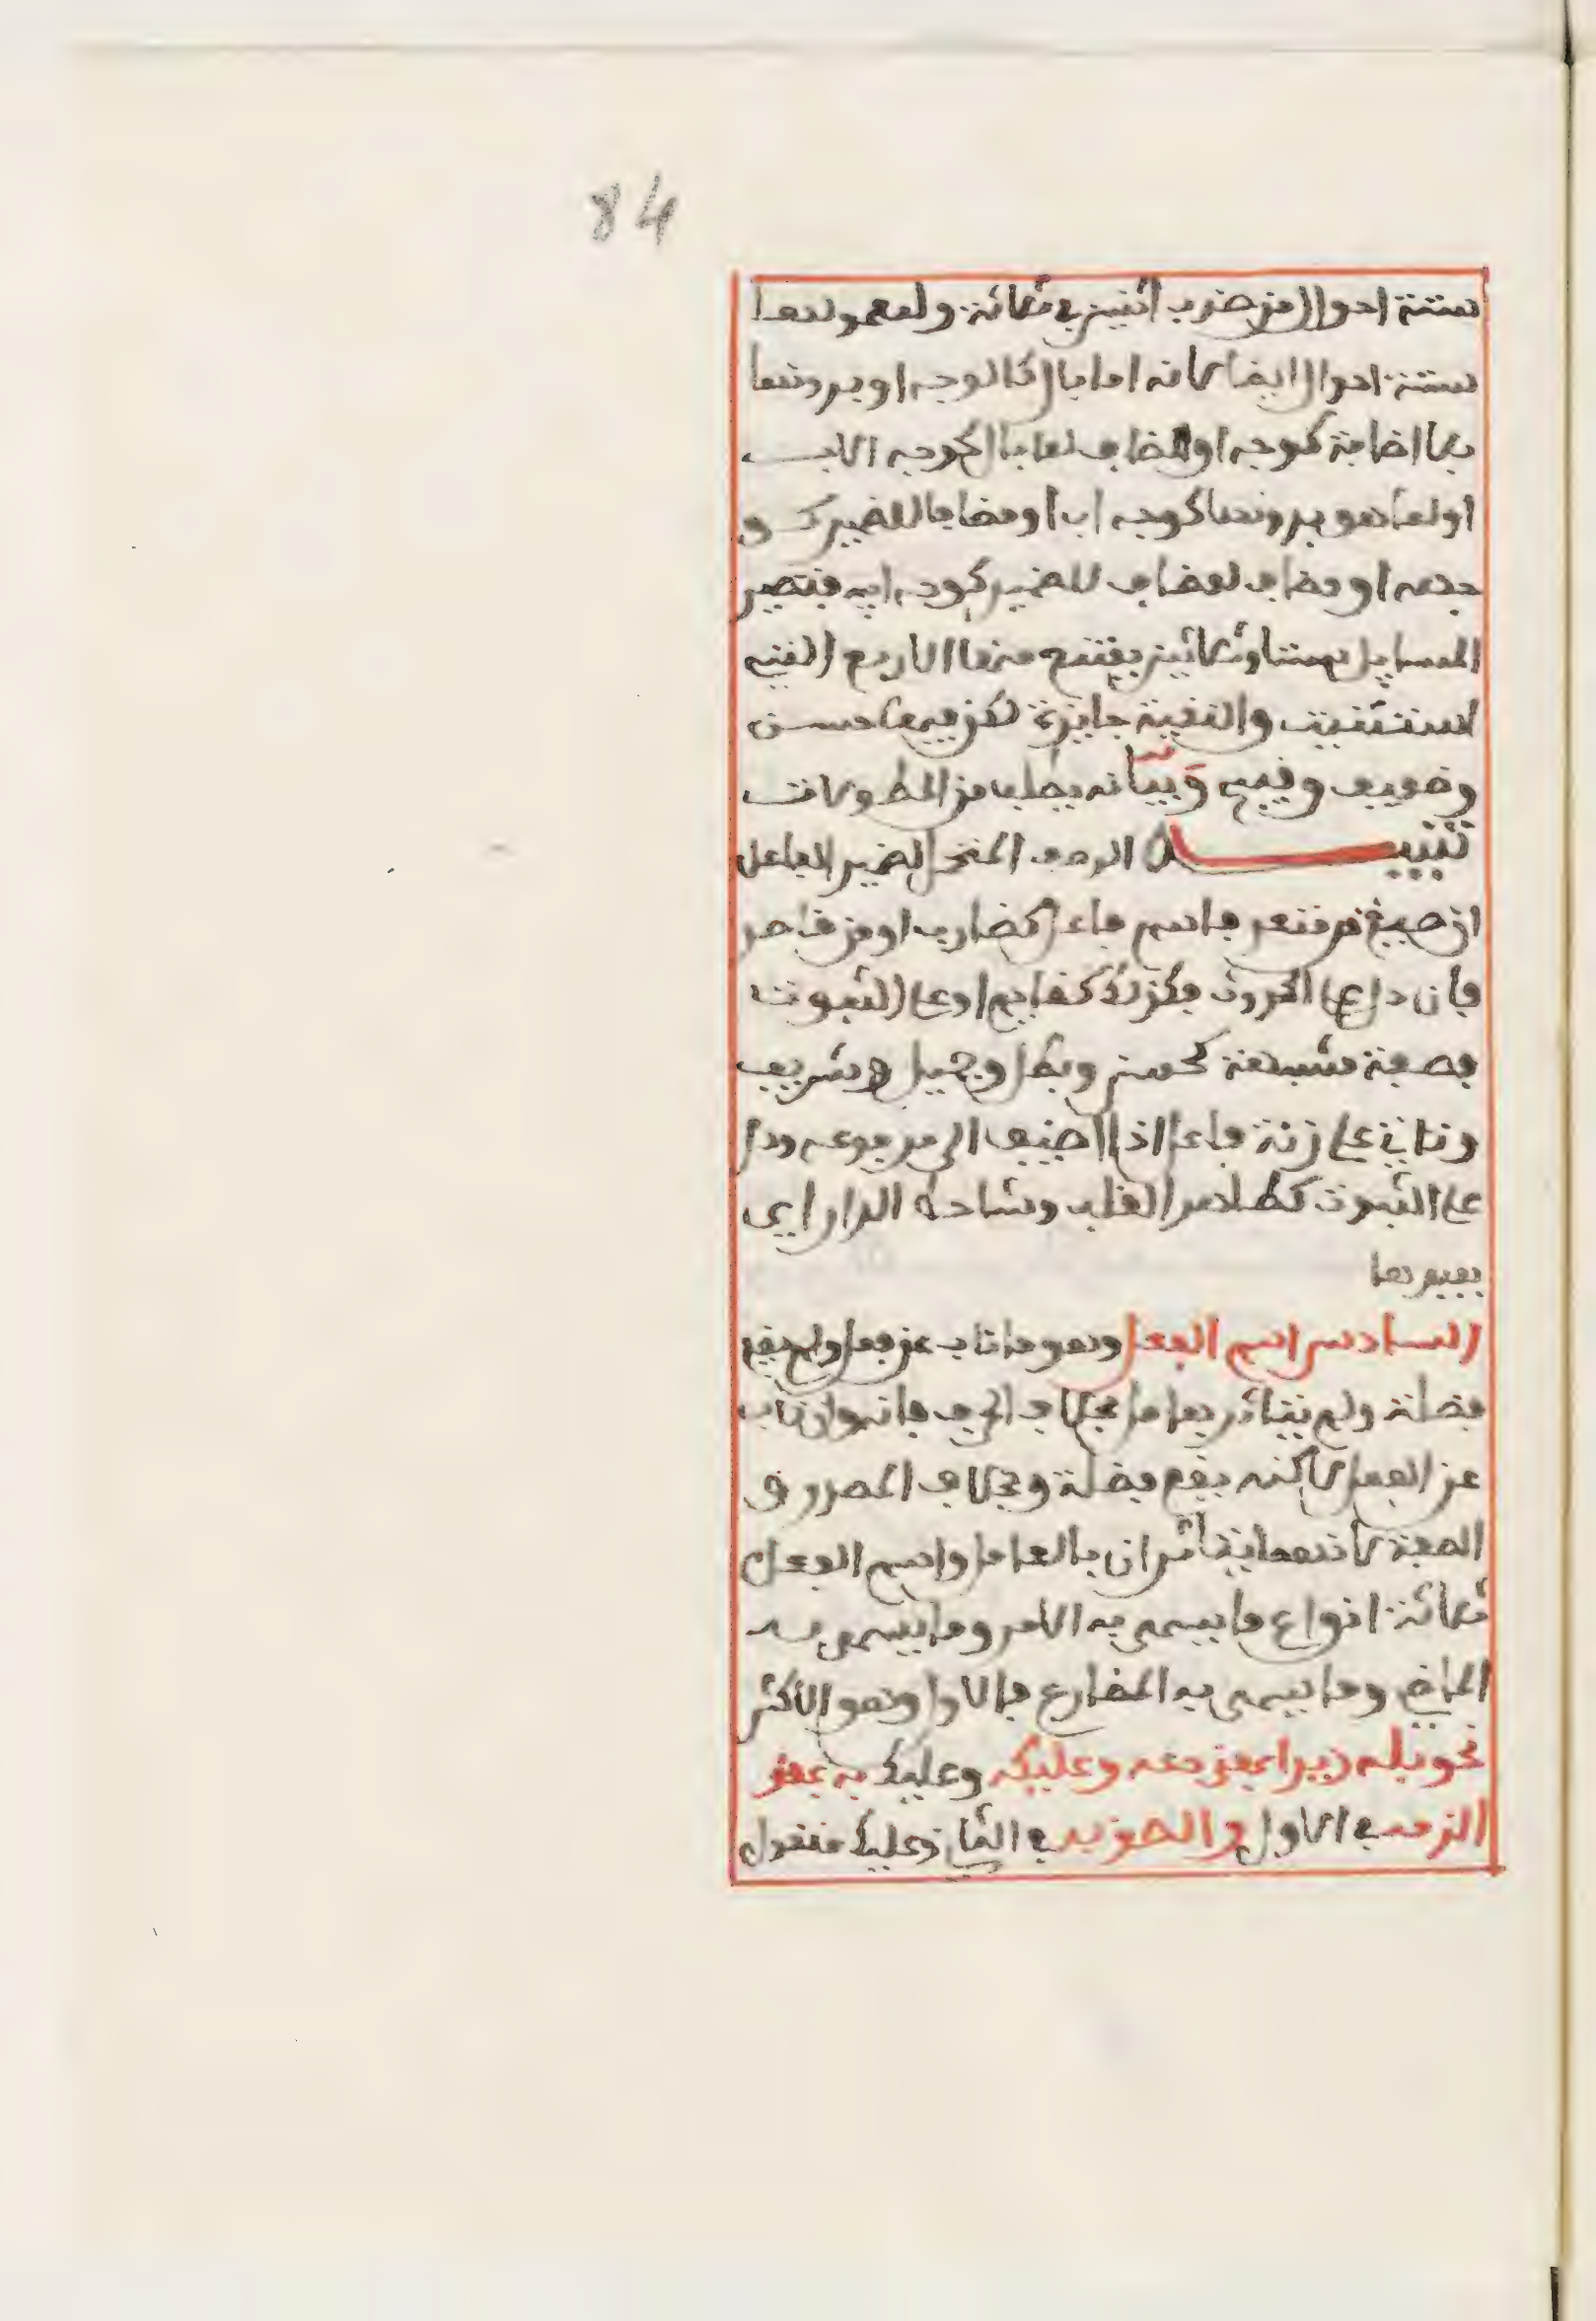 84
ستة احوال من ضرب اثنين في ثلاثة ولمعمولها
ستة احوال ايضا لانه اما بال كالوجه او بدونها
بلا اضافة كوجه او مضاف لما بال كوجه الاب
او لما هو بدونها كوجه اب او مضافا للضمير كو
جهه او مضاف لمضاف للضمير كوجه ابيه فتصير
المسايل ستا وثلاثين يمتنع منها الاربع التي
استثنيت والبقية جايزة لكن فيها حسن
وضعيف وقبيح وبيانه يطلب من المطولات
تنبيه الوصف المتحمل لضمير الفاعل
ان صيغ من متعد فاسم فاعل كضارب او من قاصر
فان دل على الحدوث فكذلك كقايم او على الثبوت
فصفة مشبهة كحسن وبطل وجميل وشريف
وتاتي على زنة فاعل اذا اضيف الى مرفوعه ودل
على الثبوت كطاهر القلب وشاحط الدار اي
بعيدها
السادس اسم الفعل وهو ما ناب عن فعل ولم يقع
فضلة ولم يتاثر بعامل بخلاف الحرف فانه وان ناب
عن الفعل لاكنه يقع فضلة وبخلاف المصدر و
الصفة لانهما يتاثران بالعامل واسم الفعل
ثلاثة انواع ما يسمى به الامر وما يسمى به
الماضي وما يسمى به المضارع فالاول وهو الاكثر
نحو بله زيدا بمعنى دعه وعليكه وعليك به بمعنى
الزمه في الاول والصق به في الثاني وعليك منقول